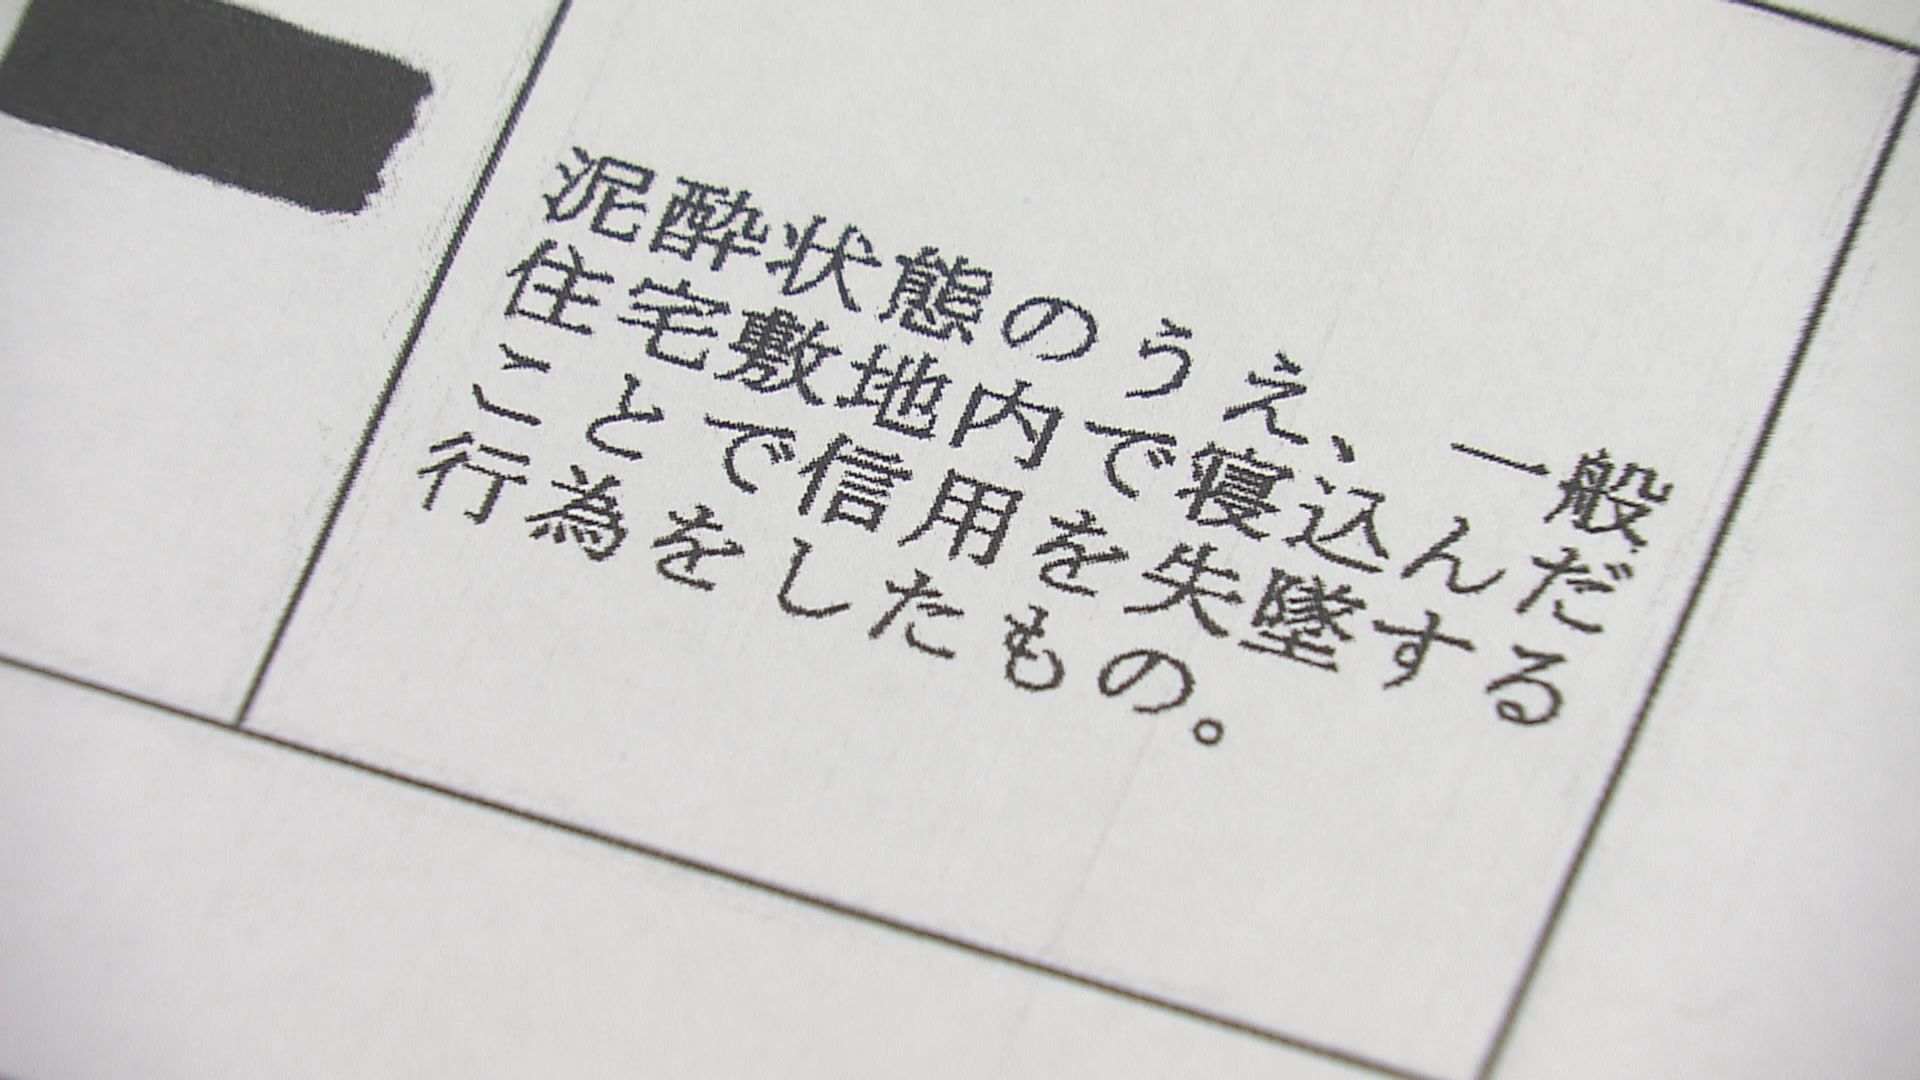 泥酔状態のうえ、一般
住宅敷地内で寝込んだ
ことで信用を失墜する
行為をしたもの。